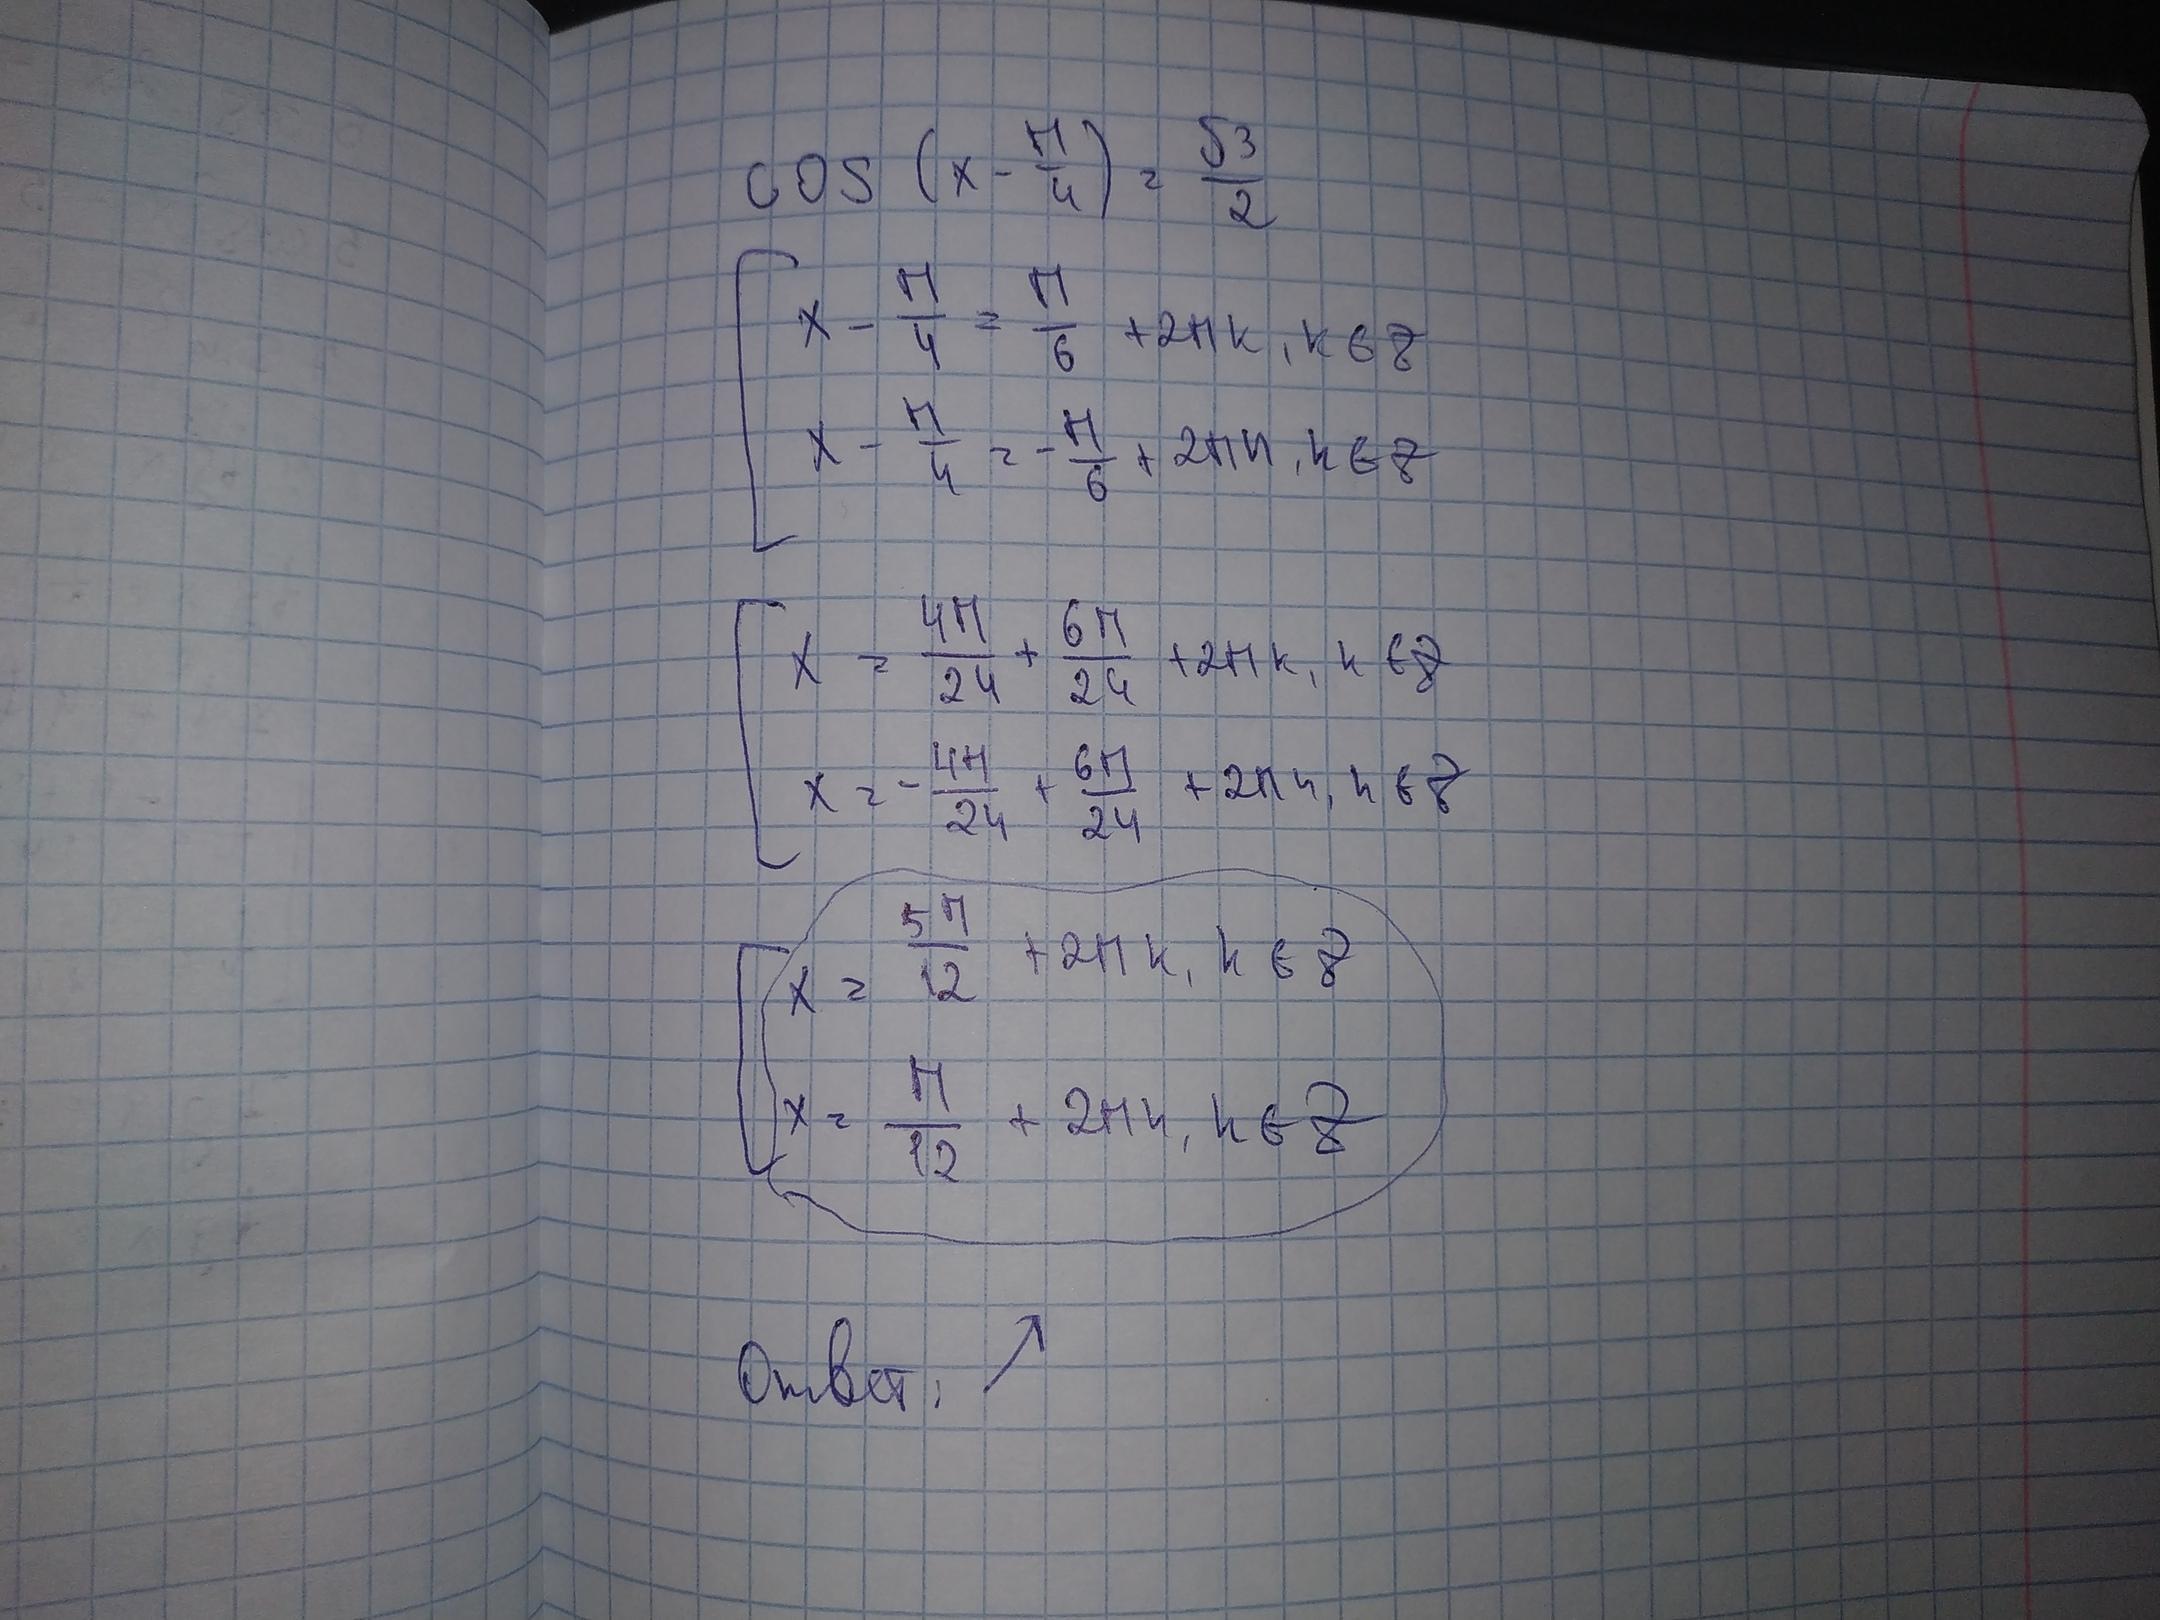 cos (x - π/4) = √3/2
x - π/4 = π/6 + 2πk, k ∈ Z
x - π/4 = -π/6 + 2πk, k ∈ Z
x = 4π/24 + 6π/24 + 2πk, k ∈ Z
x = -4π/24 + 6π/24 + 2πk, k ∈ Z
x = 5π/12 + 2πk, k ∈ Z
x = π/12 + 2πk, k ∈ Z
Ответ: ↗